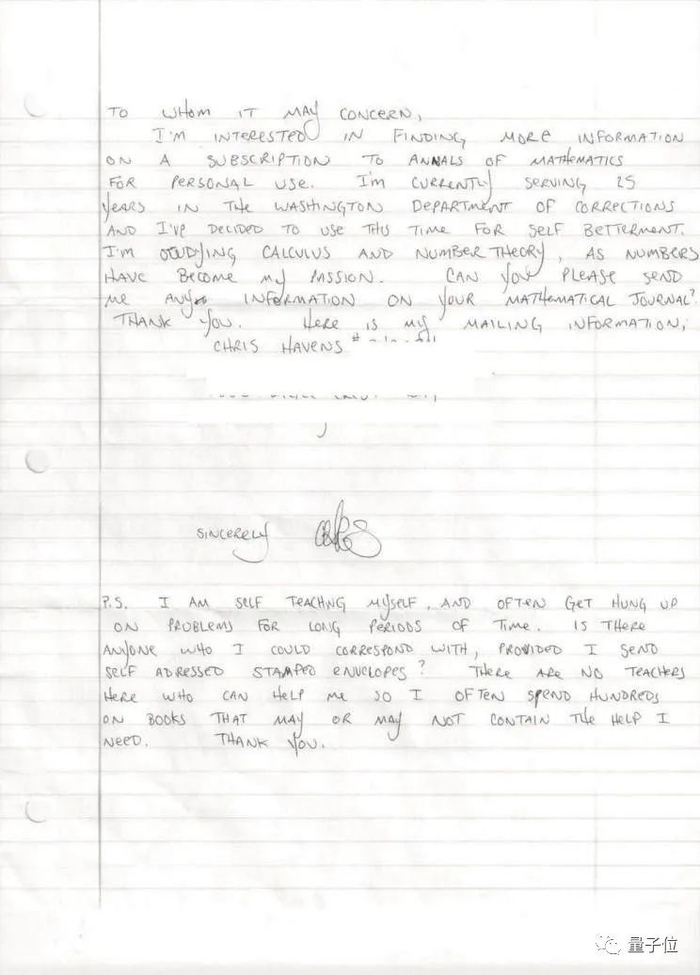 TO WHOM IT MAY CONCERN,
I'M INTERESTED IN FINDING MORE INFORMATION
ON A SUBSCRIPTION TO ANNALS OF MATHEMATICS
FOR PERSONAL USE. I'M CURRENTLY SERVING 25
YEARS IN THE WASHINGTON DEPARTMENT OF CORRECTIONS
AND I'VE DECIDED TO USE THIS TIME FOR SELF BETTERMENT.
I'M STUDYING CALCULUS AND NUMBER THEORY, AS NUMBERS
HAVE BECOME MY PASSION. CAN YOU PLEASE SEND
ME ANY INFORMATION ON YOUR MATHEMATICAL JOURNAL?
THANK YOU. HERE IS MY MAILING INFORMATION;
CHRIS HAVENS #
SINCERELY
P.S. I AM SELF TEACHING MYSELF, AND OFTEN GET HUNG UP
ON PROBLEMS FOR LONG PERIODS OF TIME. IS THERE
ANYONE WHO I COULD CORRESPOND WITH, PROVIDED I SEND
SELF ADRESSED STAMPED ENVELOPES? THERE ARE NO TEACHERS
HERE WHO CAN HELP ME SO I OFTEN SPEND HUNDREDS
ON BOOKS THAT MAY OR MAY NOT CONTAIN THE HELP I
NEED. THANK YOU.
量子位